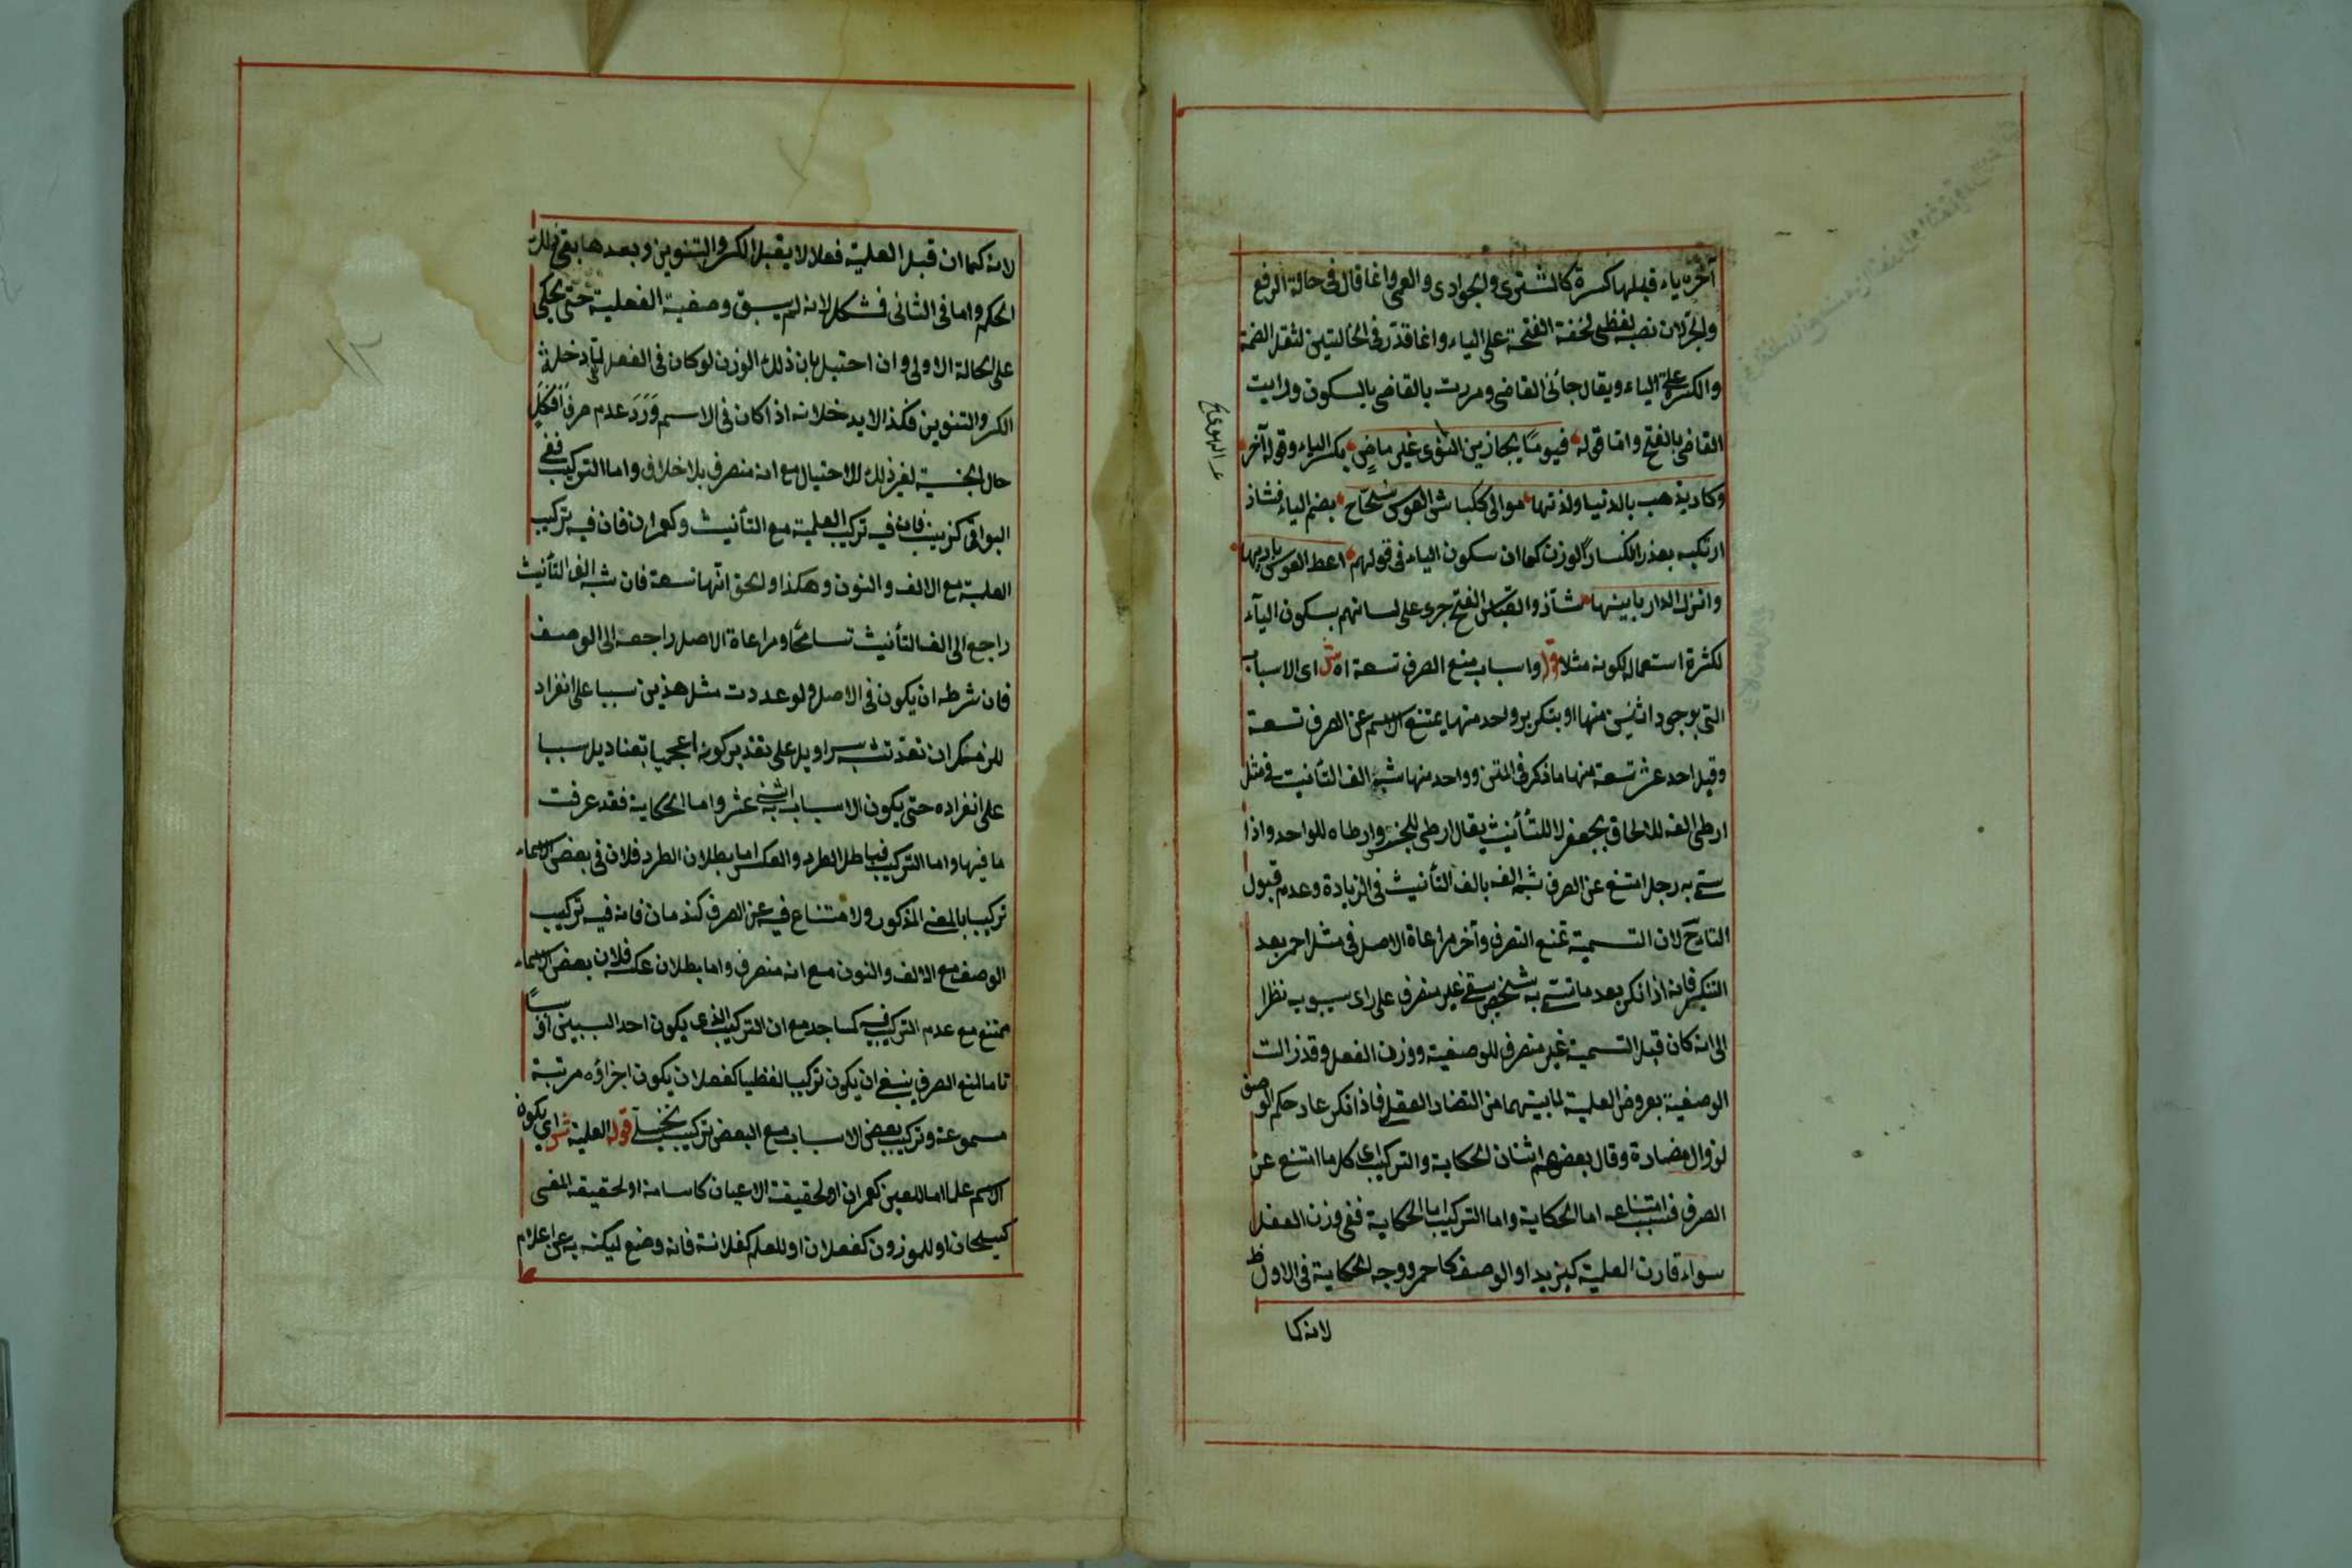 آخره ياء قبلها كسرة كالمشترى والجوادى والعمى وانما قال فى حالة الرفع
والجر لان نصبه لفظى لخفة الفتحة على الياء وانما قدر فى الحالتين لثقل الضمة
والكسرة على الياء ويقال جائنى القاضى ومررت بالقاضى بالسكون ورايت
القاضى بالفتح واما قوله فيومًا يجازين الهوى غير ماضىٍ بكسر الياء وقوله آخر
وكاد يذهب بالدنيا ولذتها موالى ككباش العوس سُحّاح بضم الياء فشاذ
ارتكب بعذر انكسار الوزن كما ان سكون الياء فى قولهم اعط القوس باريها
وانزل الدار بابينها شاذ والقياس الفتح جرى على لسانهم بسكون الياء
لكثرة استعماله لكونه مثلا قوله واسباب منع الصرف تسعة اه ش اى الاسباب
التى بوجود اثنين منها او بتكرير واحد منها يمتنع الاسم عن الصرف تسعة
وقيل احد عشر تسعة منها ما ذكر فى المتن وواحد منها شبه الف التأنيث فى مثل
ارطى الفه للالحاق بجعفر لا للتأنيث يقال ارطى للجنس وارطاه للواحد واذا
سمى به رجل امتنع عن الصرف شبه الفه بالف التأنيث فى الزيادة وعدم قبول
التاء لان التسمية تمنع التصرف وآخر مراعاة الاصل فى مثل احمر بعد
التنكير فانه اذا نكر بعد ما تسمى به شخص بقى غير منصرف على راى سيبويه نظرا
الى انه كان قبل التسمية غير منصرف للوصفية ووزن الفعل وقد زالت
الوصفية بعروض العلمية لما بينهما من التضاد العقلى فاذا نكر عاد حكم الوصف
لزوال مضادة وقال بعضهم اثنان الحكاية والتركيب اى كل ما امتنع عن
الصرف فسبب امتناعه اما الحكاية واما التركيب اما الحكاية ففى وزن الفعل
سواء قارن العلمية كيزيد او الوصف كاحمر ووجه الحكاية فى الاول ظ
لانه كما
لانه كما ان قبل العلمية فعلا لا يقبل الكسر والتنوين وبعدها بقى ذلك
الحكم واما فى الثانى فشكل لانه لم يسبق وصفية الفعلية حتى يحكى
على الحالة الاولى وان احتيل بان ذلك الوزن لو كان فى الفعل لم يدخله
الكسر والتنوين فكذا لا يدخلانه اذا كان فى الاسم وَرَدَ عدم صرف اَفْكَلٍ
حال الجنسية لغير ذلك الاحتيال مع انه منصرف بلا خلاف واما التركيب ففى
البواقى كزينب فان فيه تركيب العلمية مع التأنيث وكعمران فان فيه تركيب
العلمية مع الالف والنون وهكذا والحق انها تسعة فان شبه الف التأنيث
راجع الى الف التأنيث تسامحًا ومراعاة الاصل راجعه الى الوصف
فان شرطه ان يكون فى الاصل ولو عددت مثل هذين سببا على انفراد
للزمكم ان تعد شبه سراويل على تقدير كونه اعجميا بقناديل سببا
على انفراده حتى يكون الاسباب اثنى عشر واما الحكاية فقد عرفت
ما فيها واما التركيب فباطل الطرد والعكس اما بطلان الطرد فلان فى بعض الاسماء
تركيبا بالمعنى المذكور ولا امتناع فيه عن الصرف كندمان فانه فيه تركيب
الوصف مع الالف والنون مع انه منصرف واما بطلان عكسه فلان بعض الاسماء
ممتنع مع عدم التركيب فيه كمساجد مع ان التركيب الذى يكون احد السببين او سببًا
تاما لمنع الصرف ينبغى ان يكون تركيبا لفظيا كفعلان يكون اجزاؤه مرتبة
مسموعة وتركيب بعض الاسباب مع البعض تركيب تخييلى قوله العلمية ش اى يكون
الاسم علما اما للعين كعمران او لحقيقة الاعيان كاسامة او لحقيقة المعنى
كسبحان او للموزون كفعلان او للعلم كفلانة فانه وضع ليكنى به عن اعلام